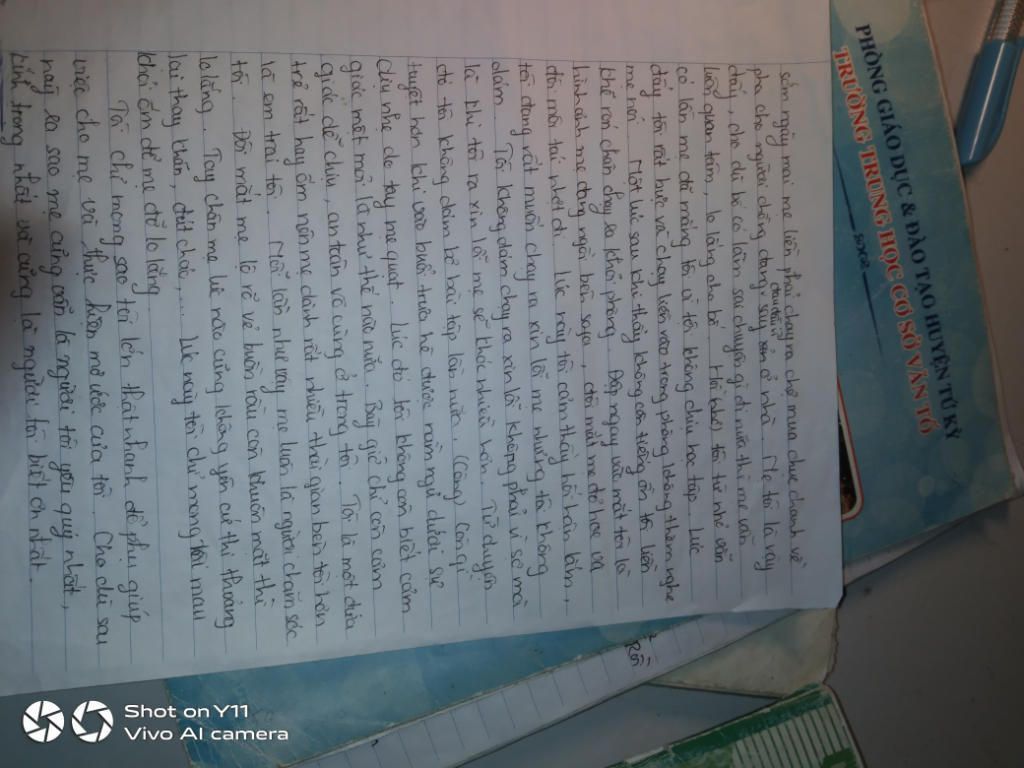 sớm ngày mai mẹ liền phải chạy ra chợ mua chục chanh về
pha cho người chồng đang say xỉn ở nhà. Mẹ tôi là vậy
chuếnh
đấy, cho dù bố có lâm sa chuyện gì đi nữa thì mẹ vẫn
luôn quan tâm, lo lắng cho bố. Hồi nhỏ, tôi từ nhỏ vốn
có lần mẹ đã mắng tôi vì tội không chịu học tập. Lúc
đấy tôi rất bực và chạy luôn vào trong phòng không thèm nghe
mẹ nói. Một lúc sau khi thấy không còn tiếng ồn tôi liền
khẽ rón chân chạy ra khỏi phòng. Đập ngay vào mắt tôi là
hình ảnh mẹ đang ngồi bên sopa, đôi mắt mẹ đỏ hoe và
đôi môi tái nhợt đi. Lúc này tôi cảm thấy hối hận lắm,
tôi đang rất muốn chạy ra xin lỗi mẹ nhưng tôi không
dám. Tôi không dám chạy ra xin lỗi không phải vì sợ mà
là khi tôi ra xin lỗi mẹ sẽ khóc nhiều hơn. Từ chuyện
đó tôi không dám bỏ bài tập lần nữa. Còn gì
tuyệt hơn khi vào buổi trưa hè được nằm ngủ dưới sự
dịu nhẹ do tay mẹ quạt. Lúc đó tôi không còn biết cảm
giác mệt mỏi là như thế nào nữa. Bây giờ chỉ còn cảm
giác dễ chịu, an toàn vô cùng ở trong tôi. Tôi là một đứa
trẻ rất hay ốm nên mẹ dành rất nhiều thời gian bên tôi hơn
là em trai tôi. Mỗi lần như vậy mẹ luôn là người chăm sóc
tôi. Đôi mắt mẹ lộ rõ vẻ buồn rầu còn khuôn mặt thì
lo lắng. Tay chân mẹ lúc nào cũng không yên cứ thi thoảng
lại thay khăn, đút cháo,... Lúc này tôi chỉ mong tôi mau
khỏi ốm để mẹ đỡ lo lắng.
Tôi chỉ mong sao tôi lớn thật nhanh để phụ giúp
việc cho mẹ và thực hiện mơ ước của tôi. Cho dù sau
này ra sao mẹ cũng vẫn là người tôi yêu quý nhất,
kính trọng nhất và cũng là người tôi biết ơn nhất.
PHÒNG GIÁO DỤC & ĐÀO TẠO HUYỆN TỨ KỲ
TRƯỜNG TRUNG HỌC CƠ SỞ VĂN TỐ
Shot on Y11
Vivo AI camera